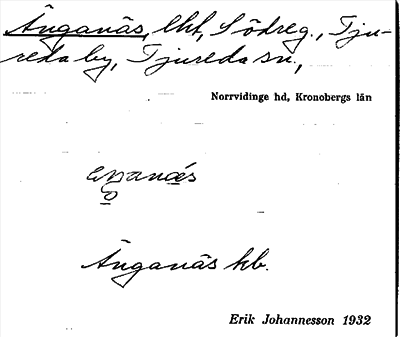 Änganäs, lht, Södreg., Tju-
reda by, Tjureda sn,
Norrvidinge hd, Kronobergs län
Änganäs kb.
Erik Johannesson 1932